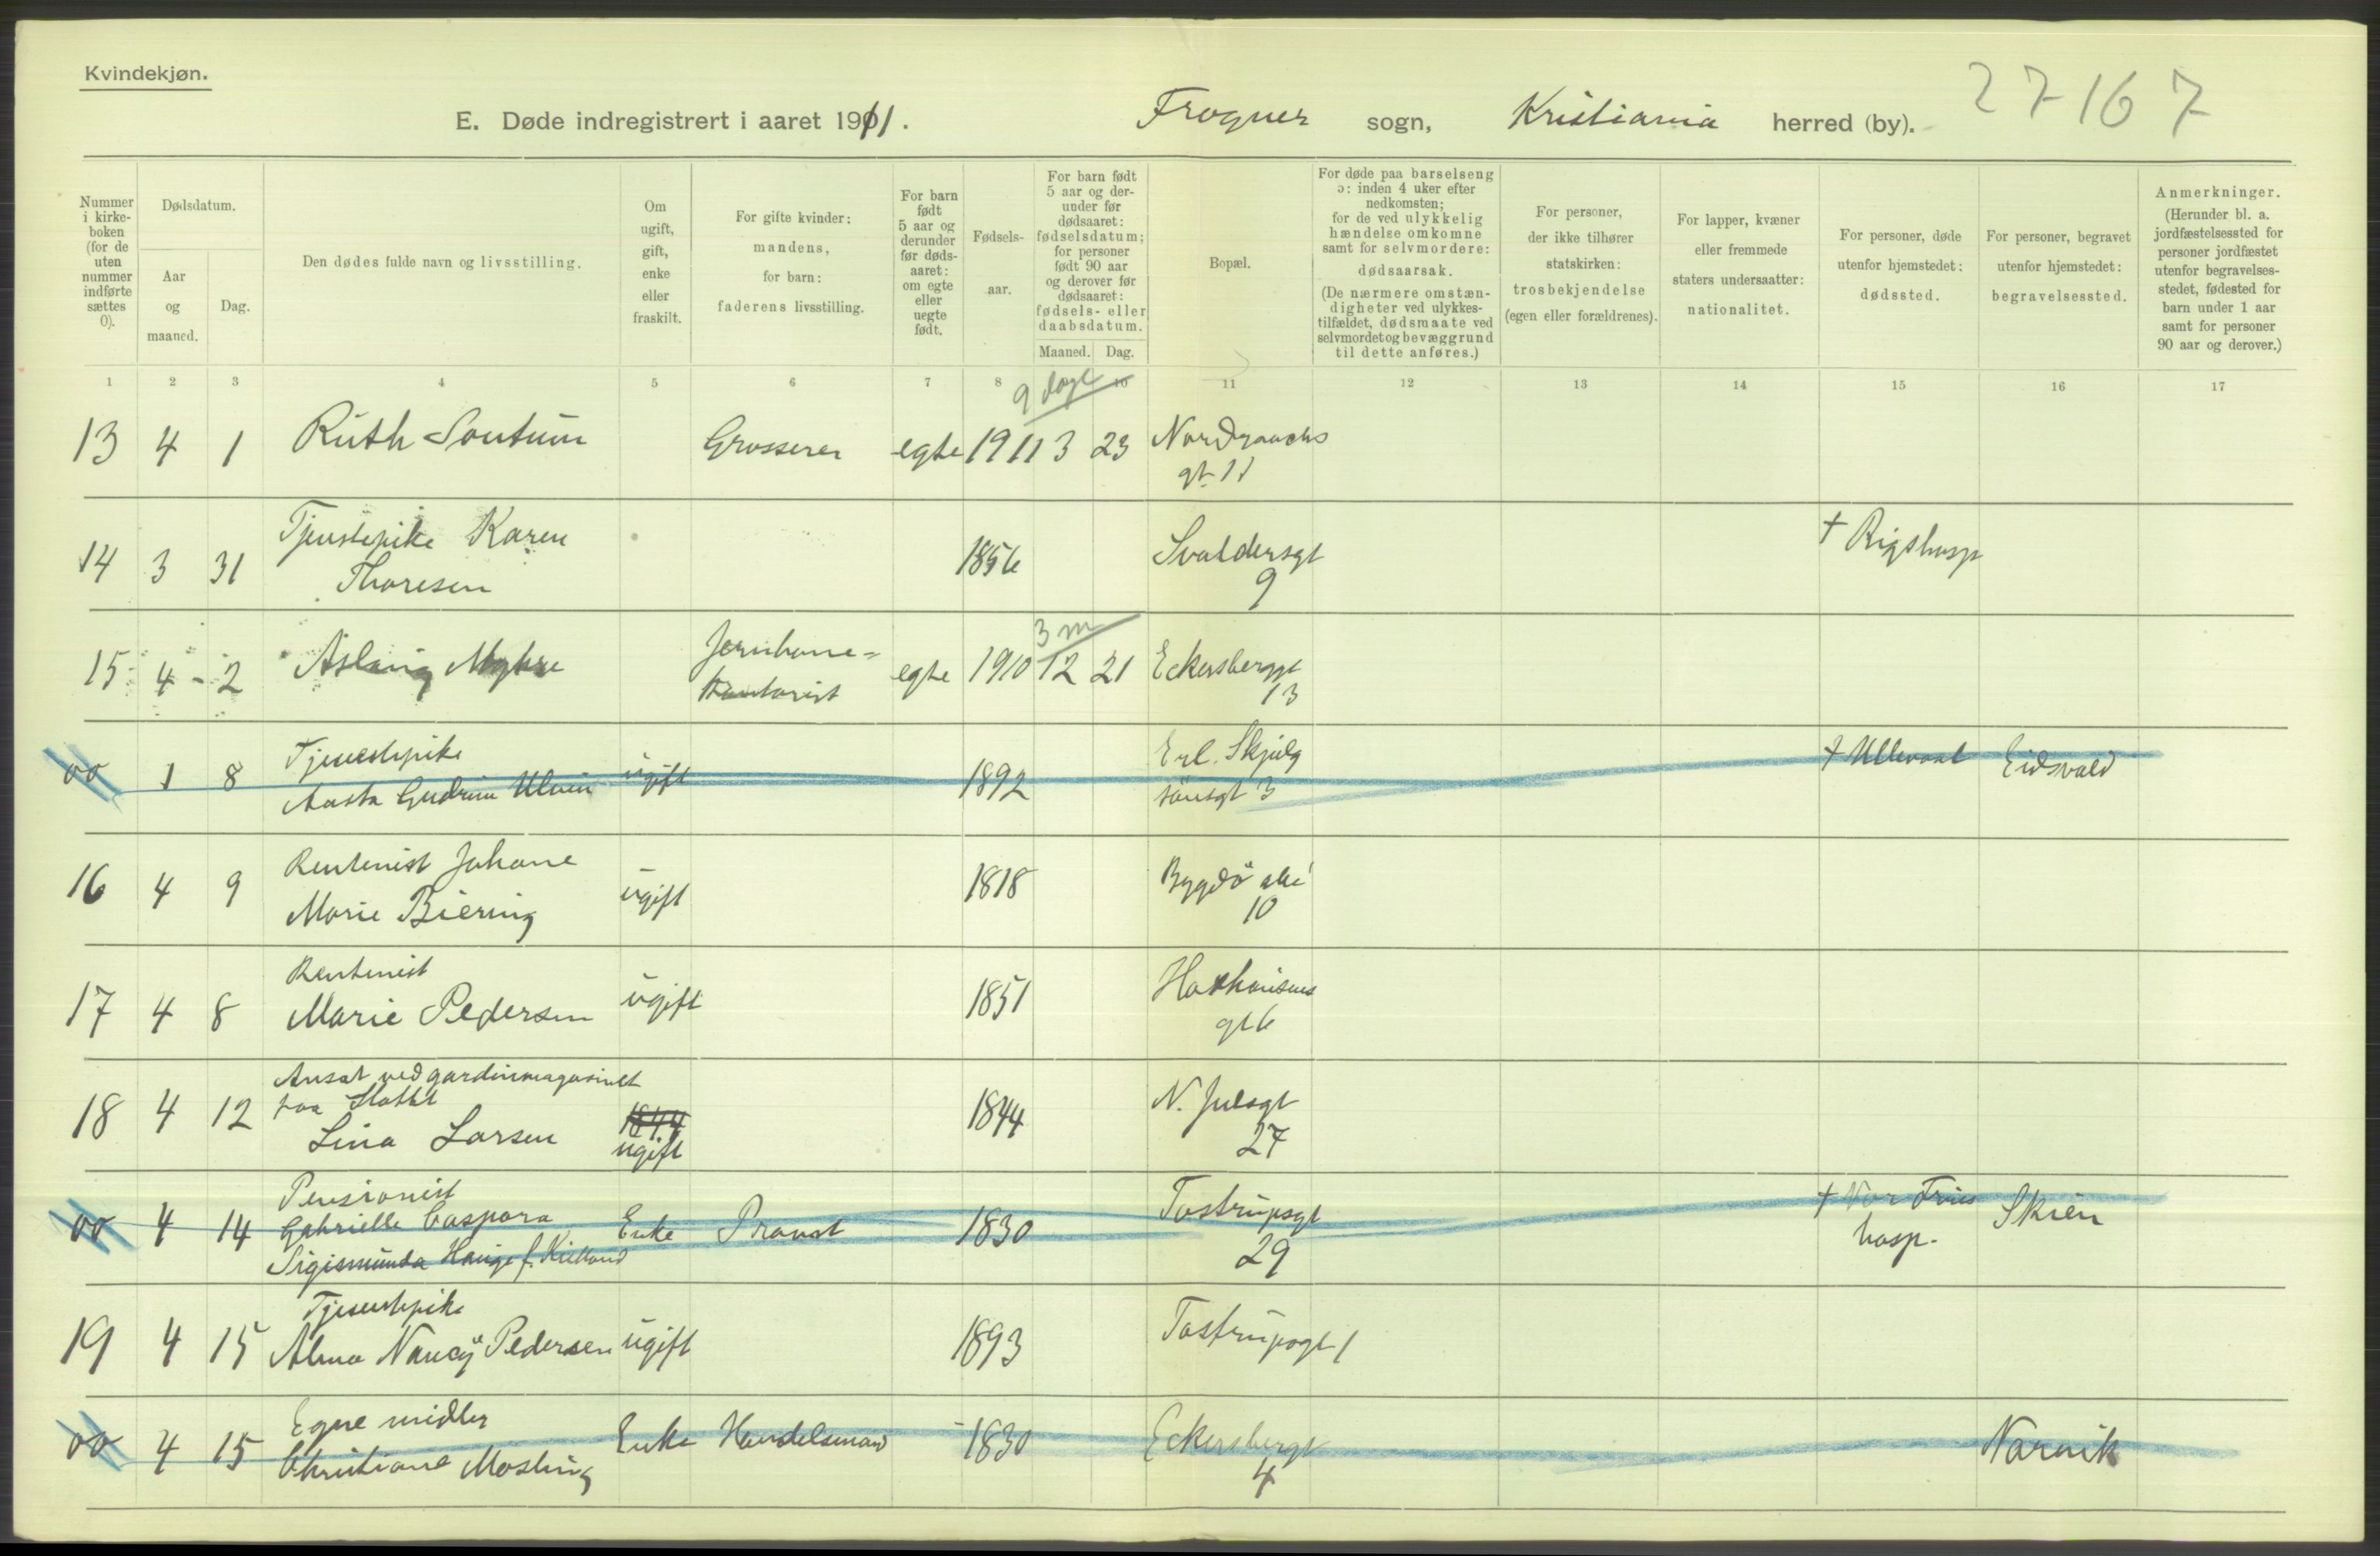 Kvindekjøn.
E. Døde indregistrert i aaret 1911. Frogner sogn, Kristiania herred (by). 27167
Nummer i kirkeboken (for de uten nummer indførte sættes 0).
Dødsdatum.
Aar og maaned.
Dag.
Den dødes fulde navn og livsstilling.
Om ugift, gift, enke eller fraskilt.
For gifte kvinder: mandens, for barn: faderens livsstilling.
For barn født 5 aar og derunder før dødsaaret: om egte eller uegte født.
Fødselsaar.
For barn født 5 aar og derunder før dødsaaret: fødselsdatum; for personer født 90 aar og derover før dødsaaret: fødsels- eller daabsdatum.
Maaned. Dag.
Bopæl.
For døde paa barselseng ɔ: inden 4 uker efter nedkomsten; for de ved ulykkelig hændelse omkomne samt for selvmordere: dødsaarsak. (De nærmere omstændigheter ved ulykkestilfældet, dødsmaate ved selvmordet og bevæggrund til dette anføres.)
For personer, der ikke tilhører statskirken: trosbekjendelse (egen eller forældrenes).
For lapper, kvæner eller fremmede staters undersaatter: nationalitet.
For personer, døde utenfor hjemstedet: dødssted.
For personer, begravet utenfor hjemstedet: begravelsessted.
Anmerkninger. (Herunder bl. a. jordfæstelsessted for personer jordfæstet utenfor begravelsesstedet, fødested for barn under 1 aar samt for personer 90 aar og derover.)
1 2 3 4 5 6 7 8 10 11 12 13 14 15 16 17
9 dage
13 4 1 Ruth Soutum Grosserer egte 1911 3 23 Nordraachs
gt. 11
14 3 31 Tjenstepike Karen 1856 Svoldersgt † Rigshosp
Thoresen 9
3 m
15 4 - 2 Aslaug Myhre Jernbane= egte 1910 12 21 Eckersberggt
kontorist 13
00 1 8 Tjenestepike ugift 1892 Erl. Skjalg † Ullevaal Eidsvold
Aasta Gudrun Ulvin sönsgt 3
16 4 9 Rentenist Johane ugift 1818 Bygdö allé
Marie Biering 10
17 4 8 Rentenist ugift 1851 Haxthausens
Marie Pedersen gt 6
18 4 12 Ansat ved gardinmagasinet 1844 N. Julsgt
paa Slottet 1844
Lina Larsen ugift 27
00 4 14 Pensionist Enke Provst 1830 Tostrupsgt † Vor Frues Skien
Gabrielle Caspara hosp.
Sigismunda Hauge f. Kielland 29
19 4 15 Tjenestepike
Alma Nancy Pedersen ugift 1893 Tostrupsgt 1
00 4 15 Egne midler Enke Handelsmand 1830 Eckersbergt Narvik
Christiane Mosling 4